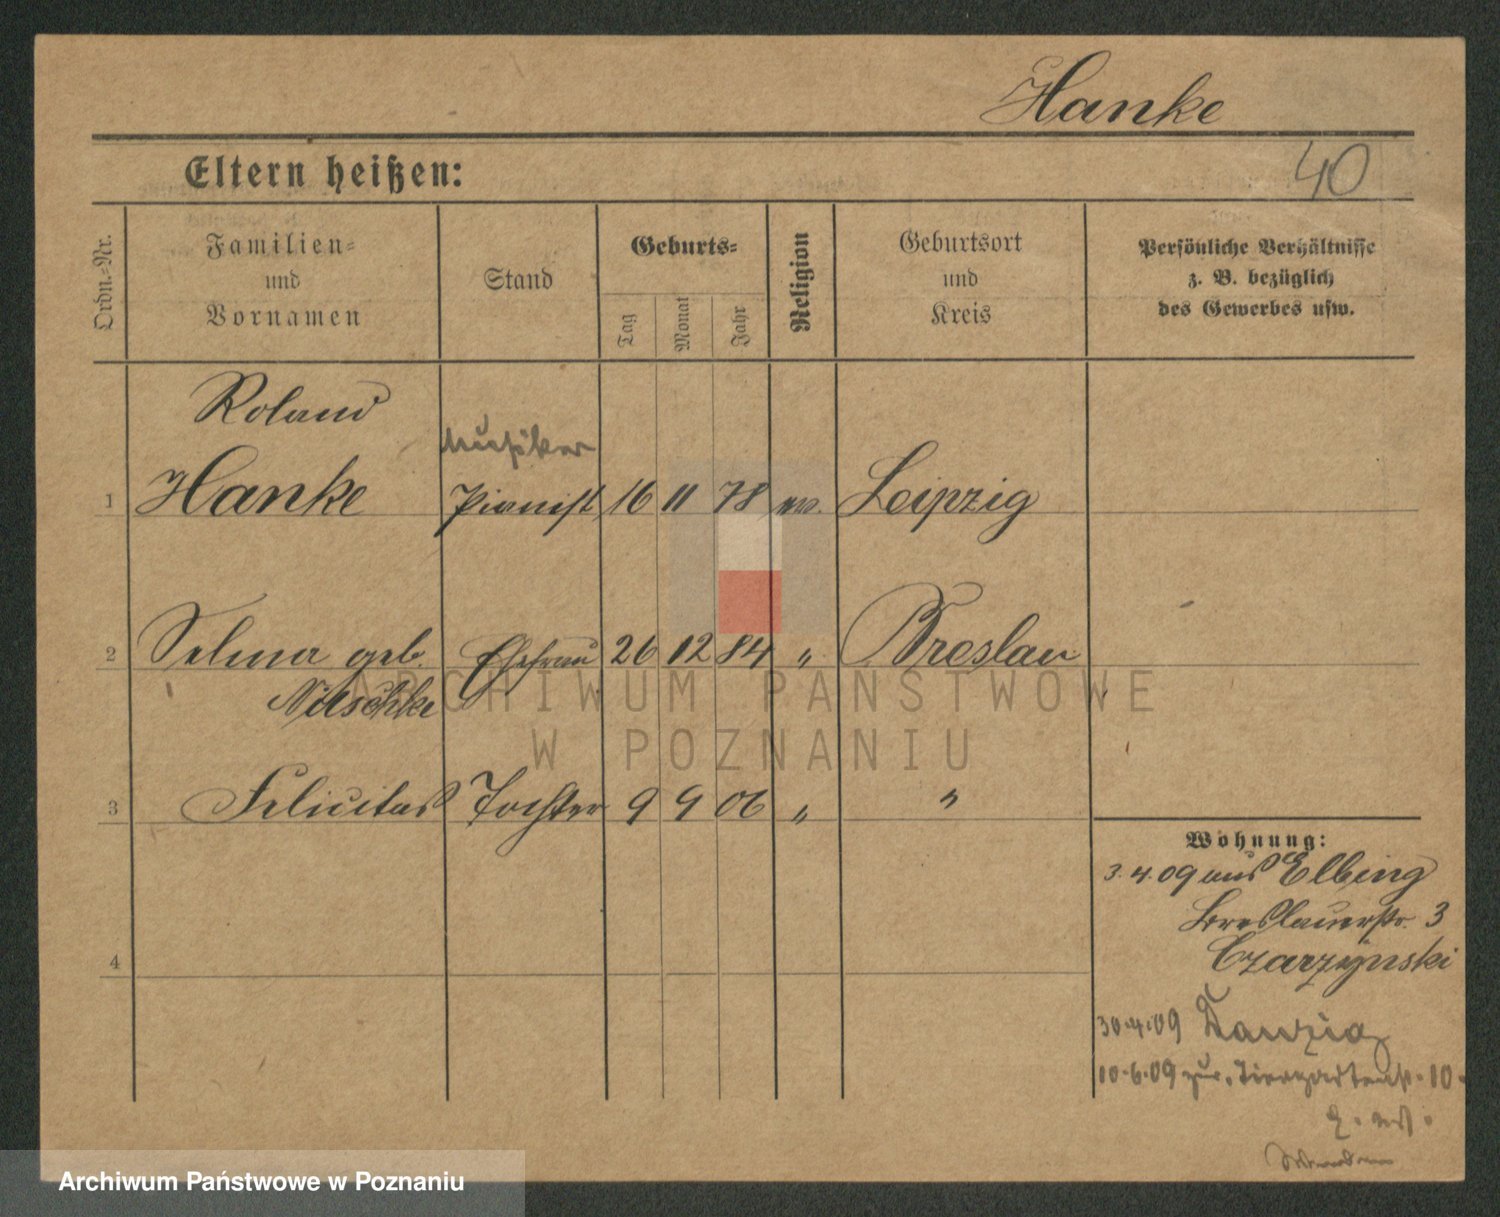 Hanke
40
Eltern heißen:
Ordn.=Nr.
Familien=
und
Vornamen
Stand
Geburts=
Tag
Monat
Jahr
Religion
Geburtsort
und
Kreis
Persönliche Verhältnisse
z. B. bezüglich
des Gewerbes usw.
Roland
Musiker
1 Hanke Pianist 16 11 78 ev. Leipzig
2 Selma geb. Ehefrau 26 12 84 " Breslau
Nitschke
3 Felicitas Tochter 9 9 06 " "
4
Wohnung:
3.4.09 aus Elbing
Breslauerstr. 3
Czarzynski
30.4.09 Danzig
10.6.09 zur. Tiergartenstr. 10
ARCHIWUM PAŃSTWOWE
W POZNANIU
Archiwum Państwowe w Poznaniu